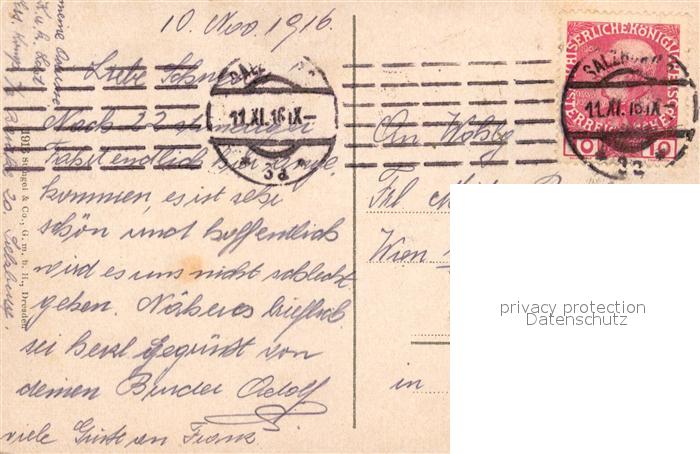 10. Nov. 1916.
Liebe Schwester
Nach 22 stündiger
Fahrt endlich hier ange-
kommen, es ist sehr
schön und hoffentlich
wird es uns nicht schlecht
gehen. Näheres brieflich
sei herzl gegrüßt von
deinen Bruder Adolf
viele Grüße an Franz.
meine Adresse
1915 Stengel & Co., G. m. b. H., Dresden
SALZBURG
11.XI.16.IX-
* 3d *
KAISERLICHE KÖNIGLICHE
ÖSTERREICHISCHE
10 10
SALZBURG
11.XI.16.IX
* 3d *
An Wohlg
Frl
Wien
in
privacy protection
Datenschutz